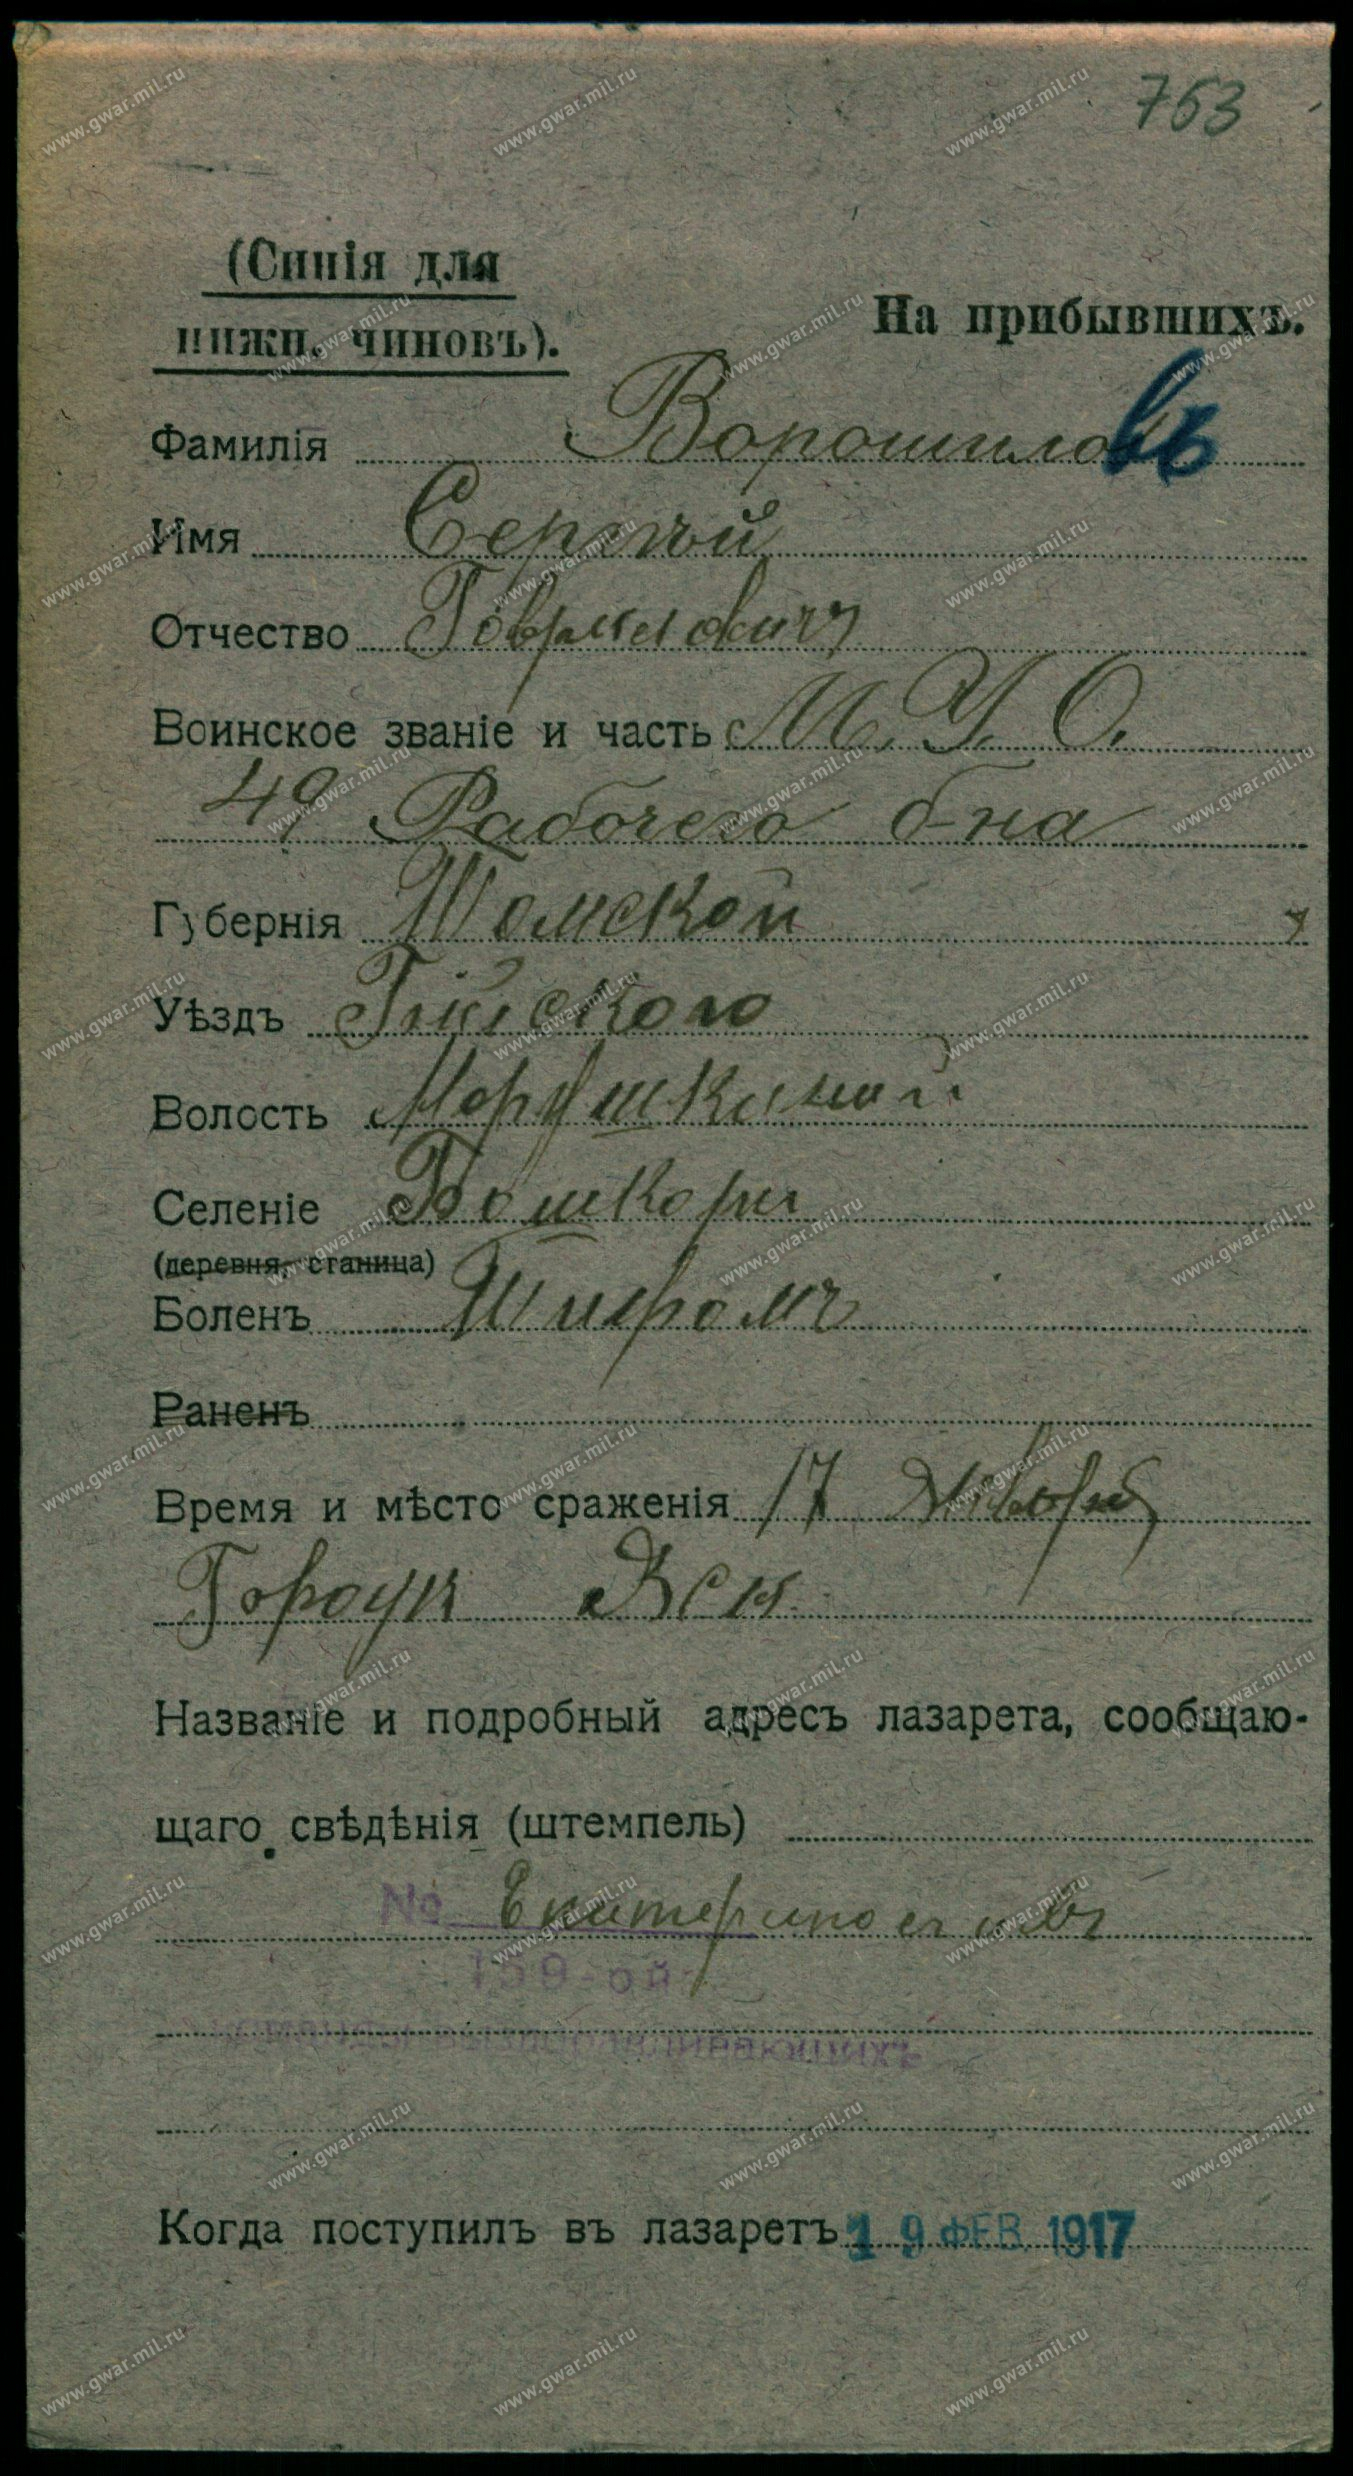 763
(Синія для
нижн. чиновъ).
На прибывшихъ.
Фамилія Ворошиловъ
Имя Сергѣй
Отчество
Воинское званіе и часть М. У. О.
49 Рабочего б-на
Губернія Томской
Уѣздъ Бійского
Волость Марушкиной
Селеніе
(деревня, станица)
Боленъ Тифомъ
Раненъ
Время и мѣсто сраженія 17 Января
Городъ
Названіе и подробный адресъ лазарета, сообщаю-
щаго свѣдѣнія (штемпель)
№ Екатеринославъ
159-ой
выздоравливающихъ
Когда поступилъ въ лазаретъ 19 ФЕВ. 1917
www.gwar.mil.ru